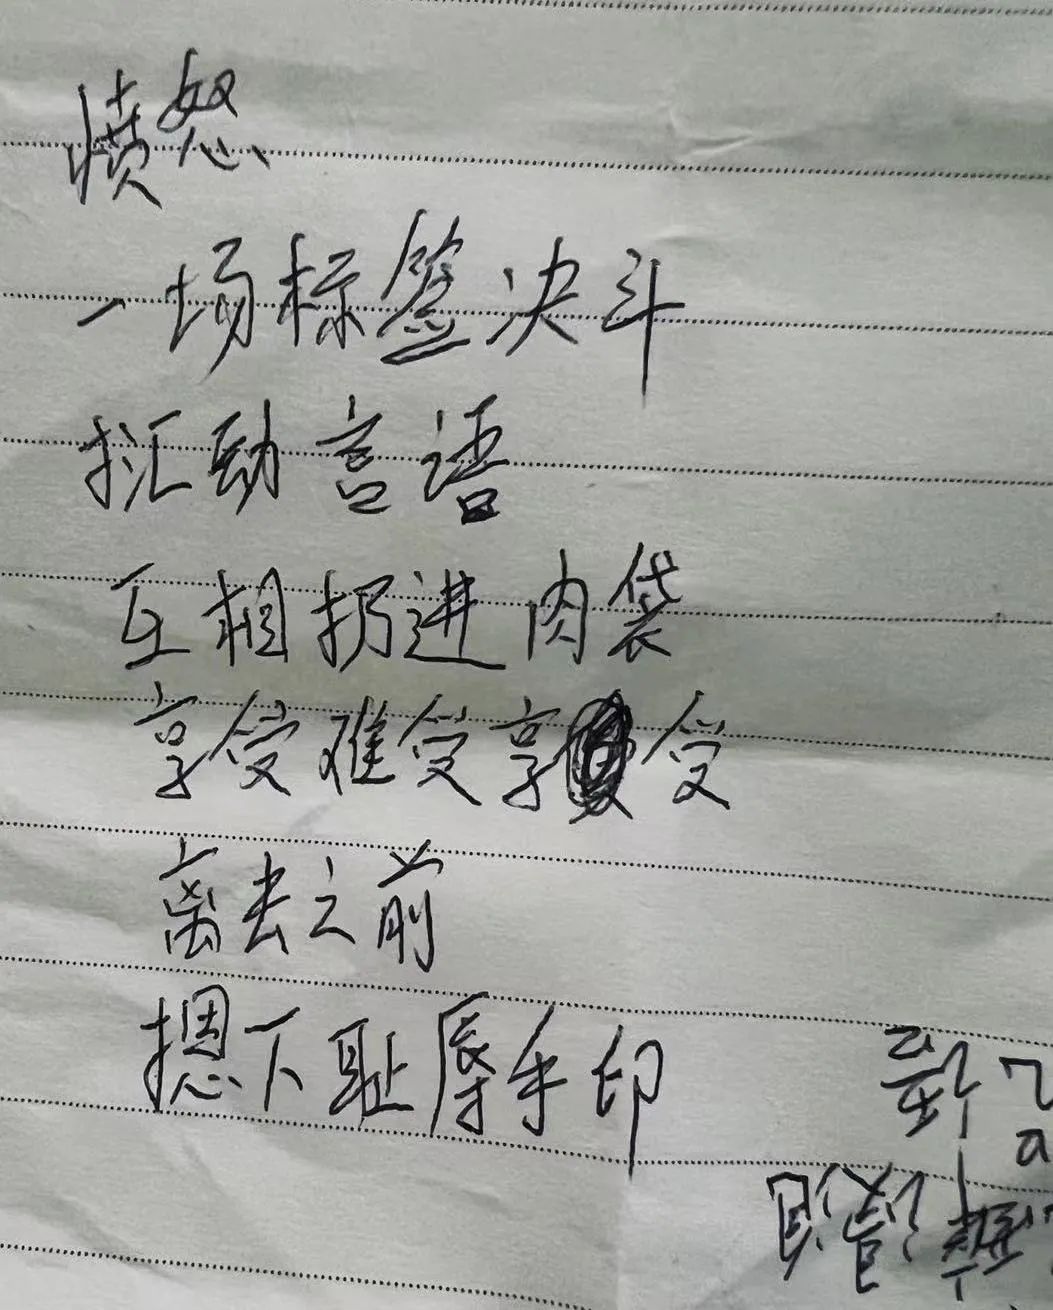 愤怒
一场标签决斗
扔动言语
互相扔进肉袋
享受难受享受
离去之前
摁下耻辱手印